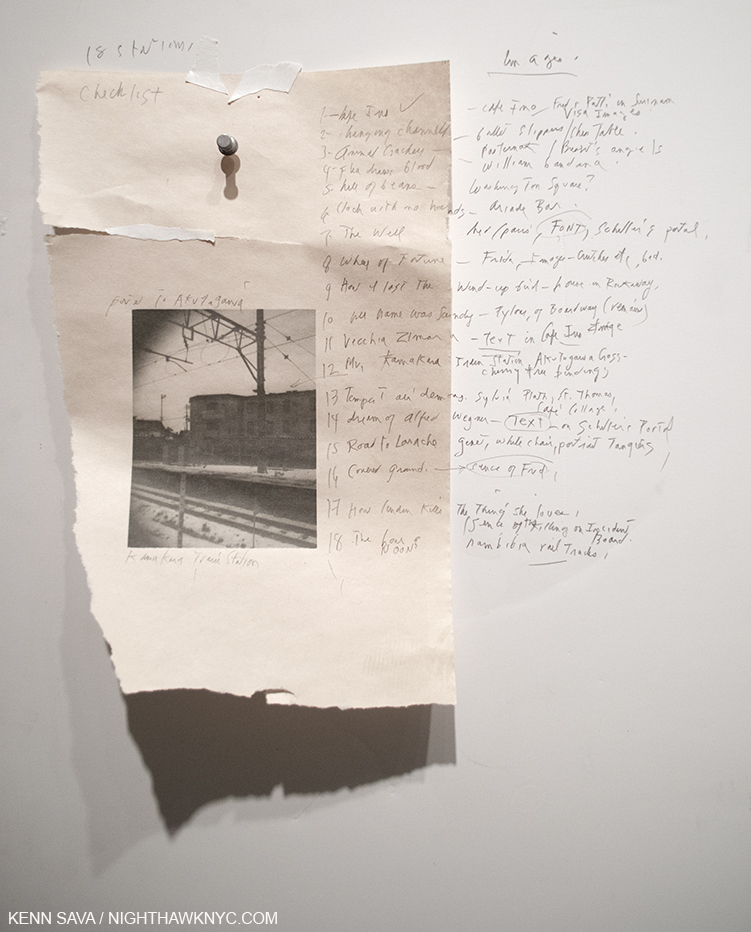 18 stations
Checklist
Image.
1- Cafe Ino ✓ - cafe Ino / Fred & Patti in Surinam
Visa Images
2- changing channels - ballet slippers /
3- Animal Crackers - Pasternak / Brest's angels
4- flea draws blood - William bandana.
5- hill of beans - Washington Square?
6 Clock with no hands - Arcade Bar.
7 The Well her / paris, FONT, Schiller's portal,
8 Wheel of Fortune - Frida, Images - crutches etc, bed.
9 How I lost the wind-up bird - house in Rockaway.
10 her name was Sandy - Tylous, of Boardway (remin)
11 Vecchia Zimarra - Text in Cafe Ino
12 Mu, Kamakura Train Station, Akutagawa Grass-
cherry tree bindings
13 Tempest air demons, Sylvia Plath, St. Thomas,
Cafe Collage.
14 dream of Alfred Wegner - Text - on Schiller's Portal
15 Road to Larache genet, white chair, portrait Tangiers
16 Covered Ground. → sence of Fred,
17 How Linden Kills The Things she loves,
(Sence of the Killing on Incident
Board.
18 The hour of NOON nambibia rail Tracks,
to Akutagawa
Kamakura Train Station
KENN SAVA / NIGHTHAWKNYC.COM